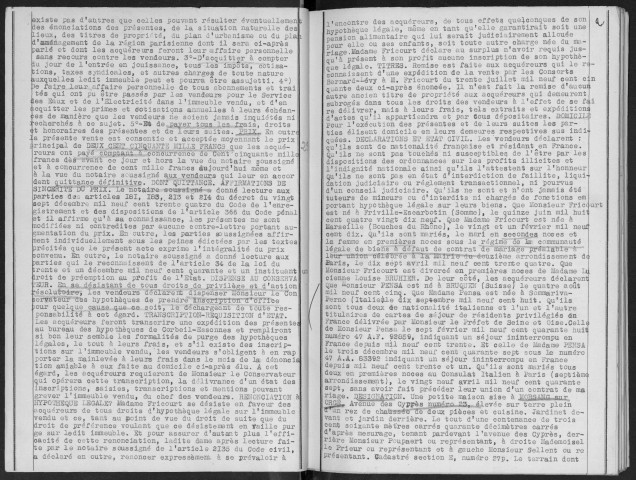 existe pas d'autres que celles pouvant résulter éventuellement
des énonciations des présentes, de la situation naturelle des
lieux, des titres de propriété, du plan d'urbanisme ou du plan
d'aménagement de la région parisienne dont il sera ci-après
parlé et dont les acquéreurs feront leur affaire personnelle
sans recours contre les vendeurs. 3°-D'acquitter à compter
du jour de l'entrée en jouissance, tous les impôts, cotisa-
tions, taxes syndicales, et autres charges de toute nature
auxquelles ledit immeuble peut et pourra être assujetti. 4°)
De faire leur affaire personnelle de tous abonnements et trai
tés qui ont pu être passés par les vendeurs pour le Service
des Eaux et de l'Electricité dans l'immeuble vendu, et d'en
acquitter les primes et cotisations annuelles à leurs échéan-
ces de manière que les vendeurs ne soient jamais inquiétés ni
recherchés à ce sujet. 5°-Et de payer tous les frais, droits
et honoraires des présentes et de leurs suites. PRIX. En outre
la présente vente est consentie et acceptée moyennant le prix
principal de DEUX CENT CINQUANTE MILLE FRANCS que les acqué-
reurs ont payé comptant à concurrence de Cent cinquante mille
francs dès avant ce jour et hors la vue du notaire soussigné
et à concurrence de cent mille francs aujourd'hui même et
à la vue du notaire soussigné aux vendeurs qui leur en accor
dent quittance définitive. DONT QUITTANCE. AFFIRMATIONS DE
SINCERITE DU PRIX. Le notaire soussigné a donné lecture aux
parties des articles
sept décembre mil neuf cent trente quatre du Code de l'enre-
gistrement et des dispositions de l'article 366 du Code pénal
et il affirme qu'à sa connaissance, les présentes ne sont
modifiées ni contredites par aucune contre-lettre portant au-
gmentation du prix. En outre, les parties soussignées affir-
ment individuellement sous les peines édictées par les textes
précités que le présent acte exprime l'intégralité du prix
convenu. En outre, le notaire soussigné a donné lecture aux
parties qui le reconnaissent de l'article 34 de la loi du
trente et un décembre mil neuf cent quarante et un instituant un
droit de préemption au profit de l'Etat. DISPENSES AU CONSERVA
TEUR. En se désistant de tous droits de privilège et d'action
résolutoire, les vendeurs déclarent dispenser Monsieur le Con
servateur des hypothèques de prendre inscription d'office
pour quelque cause que ce soit, le déchargeant de toute res-
ponsabilité à cet égard. TRANSCRIPTION-REQUISITION D'ETAT.
Les acquéreurs feront transcrire une expédition des présentes
au bureau des hypothèques de Corbeil-Essonnes et rempliront
si bon leur semble les formalités de purge des hypothèques
légales, le tout à leurs frais, et s'il existe des inscrip-
tions sur l'immeuble vendu, les vendeurs s'obligent à en rap
porter la mainlevée à leurs frais dans le mois de la dénoncia
tion amiable à eux faite au domicile ci-après élu. A cet
égard, les acquéreurs requièrent de Monsieur le Conservateur
qui opérera cette transcription, la délivrance d'un état des
inscriptions, saisies, transcriptions et mentions pouvant
grever l'immeuble vendu, du chef des vendeurs. RENONCIATION A
HYPOTHEQUE LEGALE. Madame Fricourt se désiste en faveur des
acquéreurs de tous droits d'hypothèque légale sur l'immeuble
vendu et ce, tant au point de vue du droit de suite que du
droit de préférence voulant que ce désistement en vaille pur
ge sur ledit immeuble. Et pour assurer d'autant plus l'effi-
cacité de cette renonciation, ladite dame après lecture fai-
te par le notaire soussigné de l'article 2135 du Code civil,
a déclaré en outre, renoncer expressément à se prévaloir à
l'encontre des acquéreurs, de tous effets quelconques de son
hypothèque légale, même en tant qu'elle garantirait soit une
pension alimentaire qui lui serait judiciairement allouée
pour elle ou ses enfants, soit toute autre charge née du ma-
riage. Madame Fricourt déclare au surplus n'avoir requis jus-
qu'à présent à son profit aucune inscription de son hypothè-
que légale. TITRES. Remise est faite aux acquéreurs qui le re-
connaissent d'une expédition de la vente par les Consorts
Bernard-Lévy à M. Fricourt du trente juillet mil neuf cent cin
quante deux ci-après énoncée. Il n'est fait la remise d'aucun
autre ancien titre de propriété aux acquéreurs qui demeurent
subrogés dans tous les droits des vendeurs à l'effet de se fai
re délivrer, mais à leurs frais, tels extraits et expéditions
d'actes qu'il appartiendra et par tous dépositaires. DOMICILE
Pour l'exécution des présentes et de leurs suites les par-
ties élisent domicile en leurs demeures respectives sus indi-
quées. DECLARATIONS D'ETAT CIVIL. Les vendeurs déclarent :
Qu'ils sont de nationalité française et résident en France.
Qu'ils ne sont pas touchés ni susceptibles de l'être par les
dispositions des ordonnances sur les profits illicites et
l'indignité nationale ainsi qu'ils l'attestent sur l'honneur
Qu'ils ne sont pas en état d'interdiction de faillite, liqui-
dation judiciaire ou règlement transactionnel, ni pourvus
d'un conseil judiciaire. Qu'ils ne sont et n'ont jamais été
tuteurs de mineurs ou d'interdits ni chargés de fonctions em
portant hypothèque légale sur leurs biens. Que Monsieur Fricourt
est né à Friville-Escarbotin (Somme), le quinze juin mil huit
cent quatre vingt dix sept. Que Madame Fricourt est née à
Marseille (Bouches du Rhône), le vingt et un février mil neuf
cent dix. Qu'ils sont mariés, le mari en secondes noces et
la femme en premières noces sous le régime de la communauté
légale de biens à défaut de contrat de mariage préalable à
leur union célébrée à la mairie du deuxième arrondissement de
Paris, le dix sept avril mil neuf cent trente quatre. Que
Monsieur Fricourt est divorcé en premières noces de Madame Lu
cienne Louise De leur côté, les acquéreurs déclarent
Que Monsieur PENSA est né à (Suisse) le quatre août
mil neuf cent cinq. Que Madame Pensa est née à
Ferno (Italie) le dix septembre mil neuf cent huit. Qu'ils
sont tous deux de nationalité italienne et l'un et l'autre
titulaires de cartes de séjour de résidents privilégiés en
France délivrée par Monsieur le Préfet de Seine et Oise. Celle
de Monsieur Pensa le sept février mil neuf cent quarante huit
numéro 47 A.Y. 92659, indiquant un séjour ininterrompu en
France depuis mil neuf cent trente. Et celle de Madame PENSA
le trois décembre mil neuf cent quarante sept sous le numéro
47 A.A. 63392 indiquant un séjour ininterrompu en France
depuis mil neuf cent trente et un. Qu'ils sont mariés tous
deux en premières noces au Consulat Italien à Paris (septième
arrondissement), le vingt neuf avril mil neuf cent quarante
sept, sans avoir fait précéder leur union d'un contrat de ma
riage. DESIGNATION. Une petite maison sise à MORSANG sur
ORGE, Avenue des Cyprès numéro élevée sur terre plein
d'un rez de chaussée de deux pièces et cuisine. Jardinet de-
vant et jardin derrière. Le tout d'une contenance de trois
cent soixante mètres carrés quarante décimètres carrés
d'après mesurage, tenant pardevant l'avenue des Cyprès, der-
rière Monsieur Poupenart ou représentant, à droite Mademoisel
le Prieur ou représentant et à gauche Monsieur Sellent ou re
présentant. Cadastré section E, numéro 277p. Le terrain dont